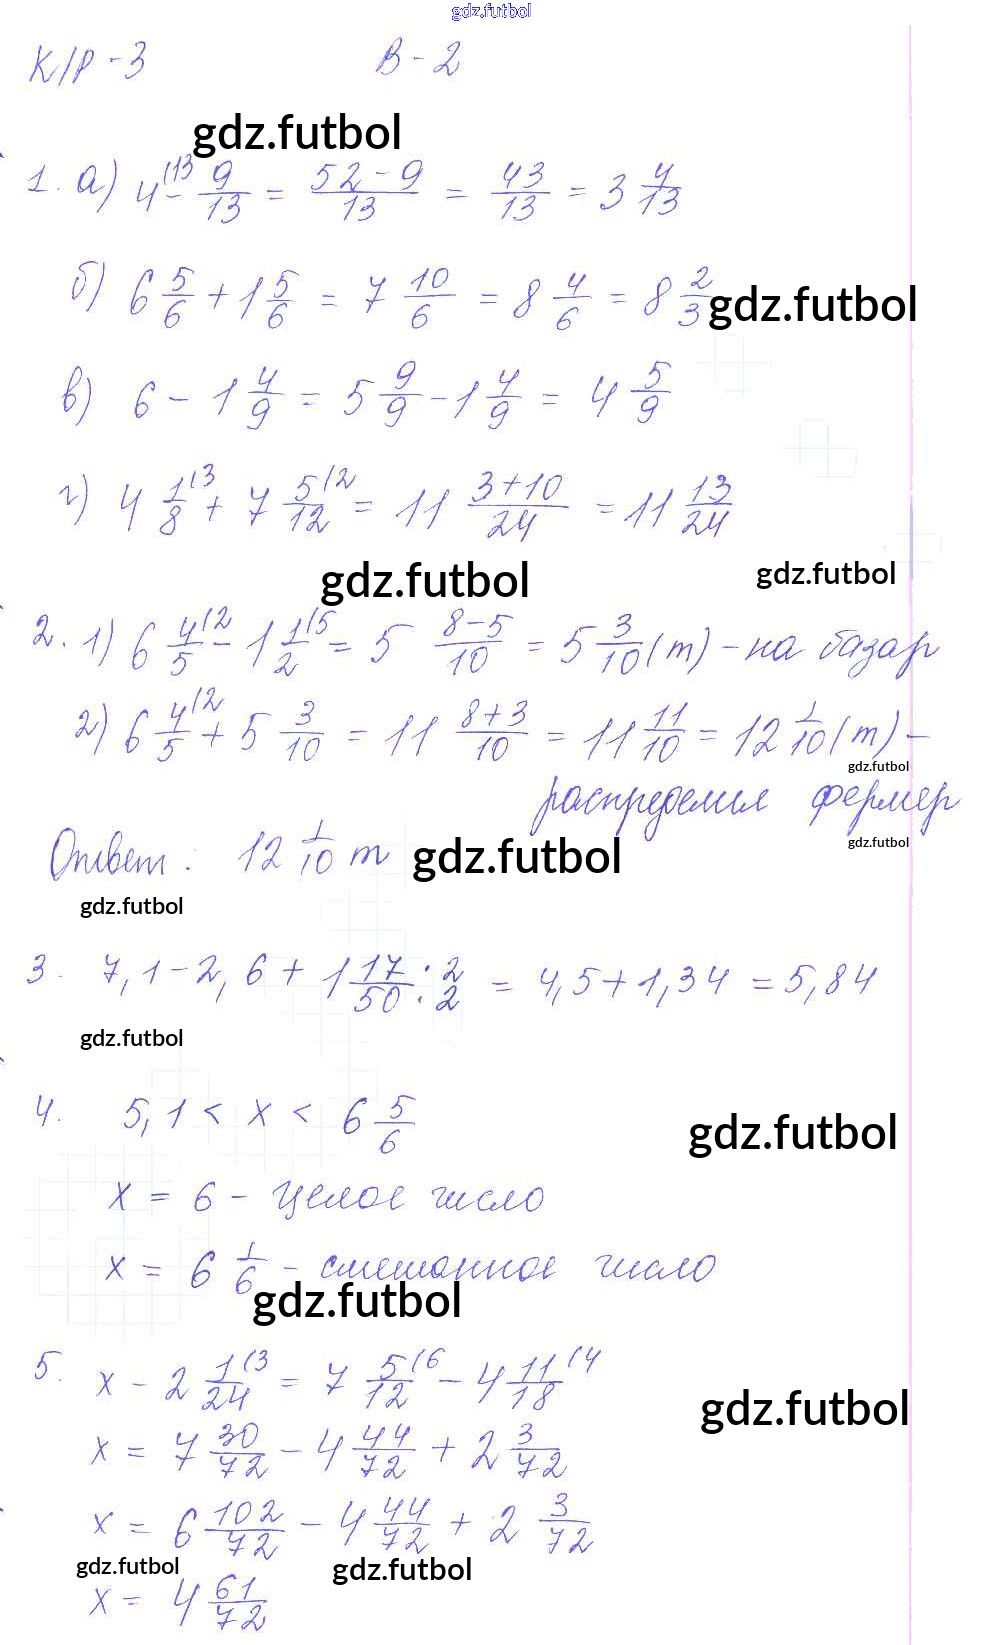 gdz.futbol
К/Р - 3 В - 2
gdz.futbol
1. а) 4(13 - 9/13 = (52 - 9)/13 = 43/13 = 3 4/13
б) 6 5/6 + 1 5/6 = 7 10/6 = 8 4/6 = 8 2/3 gdz.futbol
в) 6 - 1 4/9 = 5 9/9 - 1 4/9 = 4 5/9
г) 4 1/8(3 + 7 5/12(2 = 11 (3+10)/24 = 11 13/24
gdz.futbol gdz.futbol
2. 1) 6 4/5(2 - 1 1/2(5 = 5 (8-5)/10 = 5 3/10 (т) - на базар
2) 6 4/5(2 + 5 3/10 = 11 (8+3)/10 = 11 11/10 = 12 1/10 (т) -
gdz.futbol
распределил фермер
gdz.futbol
Ответ: 12 1/10 т gdz.futbol
gdz.futbol
3. 7,1 - 2,6 + 1 17/50 :2/:2 = 4,5 + 1,34 = 5,84
gdz.futbol
4. 5,1 < x < 6 5/6
gdz.futbol
x = 6 - целое число
x = 6 1/6 - смешанное число
gdz.futbol
5. x - 2 1/24(3 = 7 5/12(6 - 4 11/18(4
gdz.futbol
x = 7 30/72 - 4 44/72 + 2 3/72
x = 6 102/72 - 4 44/72 + 2 3/72
gdz.futbol gdz.futbol
x = 4 61/72